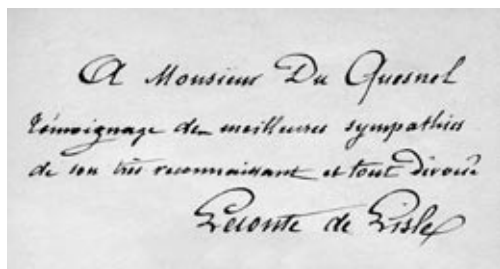 A Monsieur Du Quesnel
témoignage des meilleures sympathies
de son très reconnaissant et tout dévoué
Leconte de Lisle